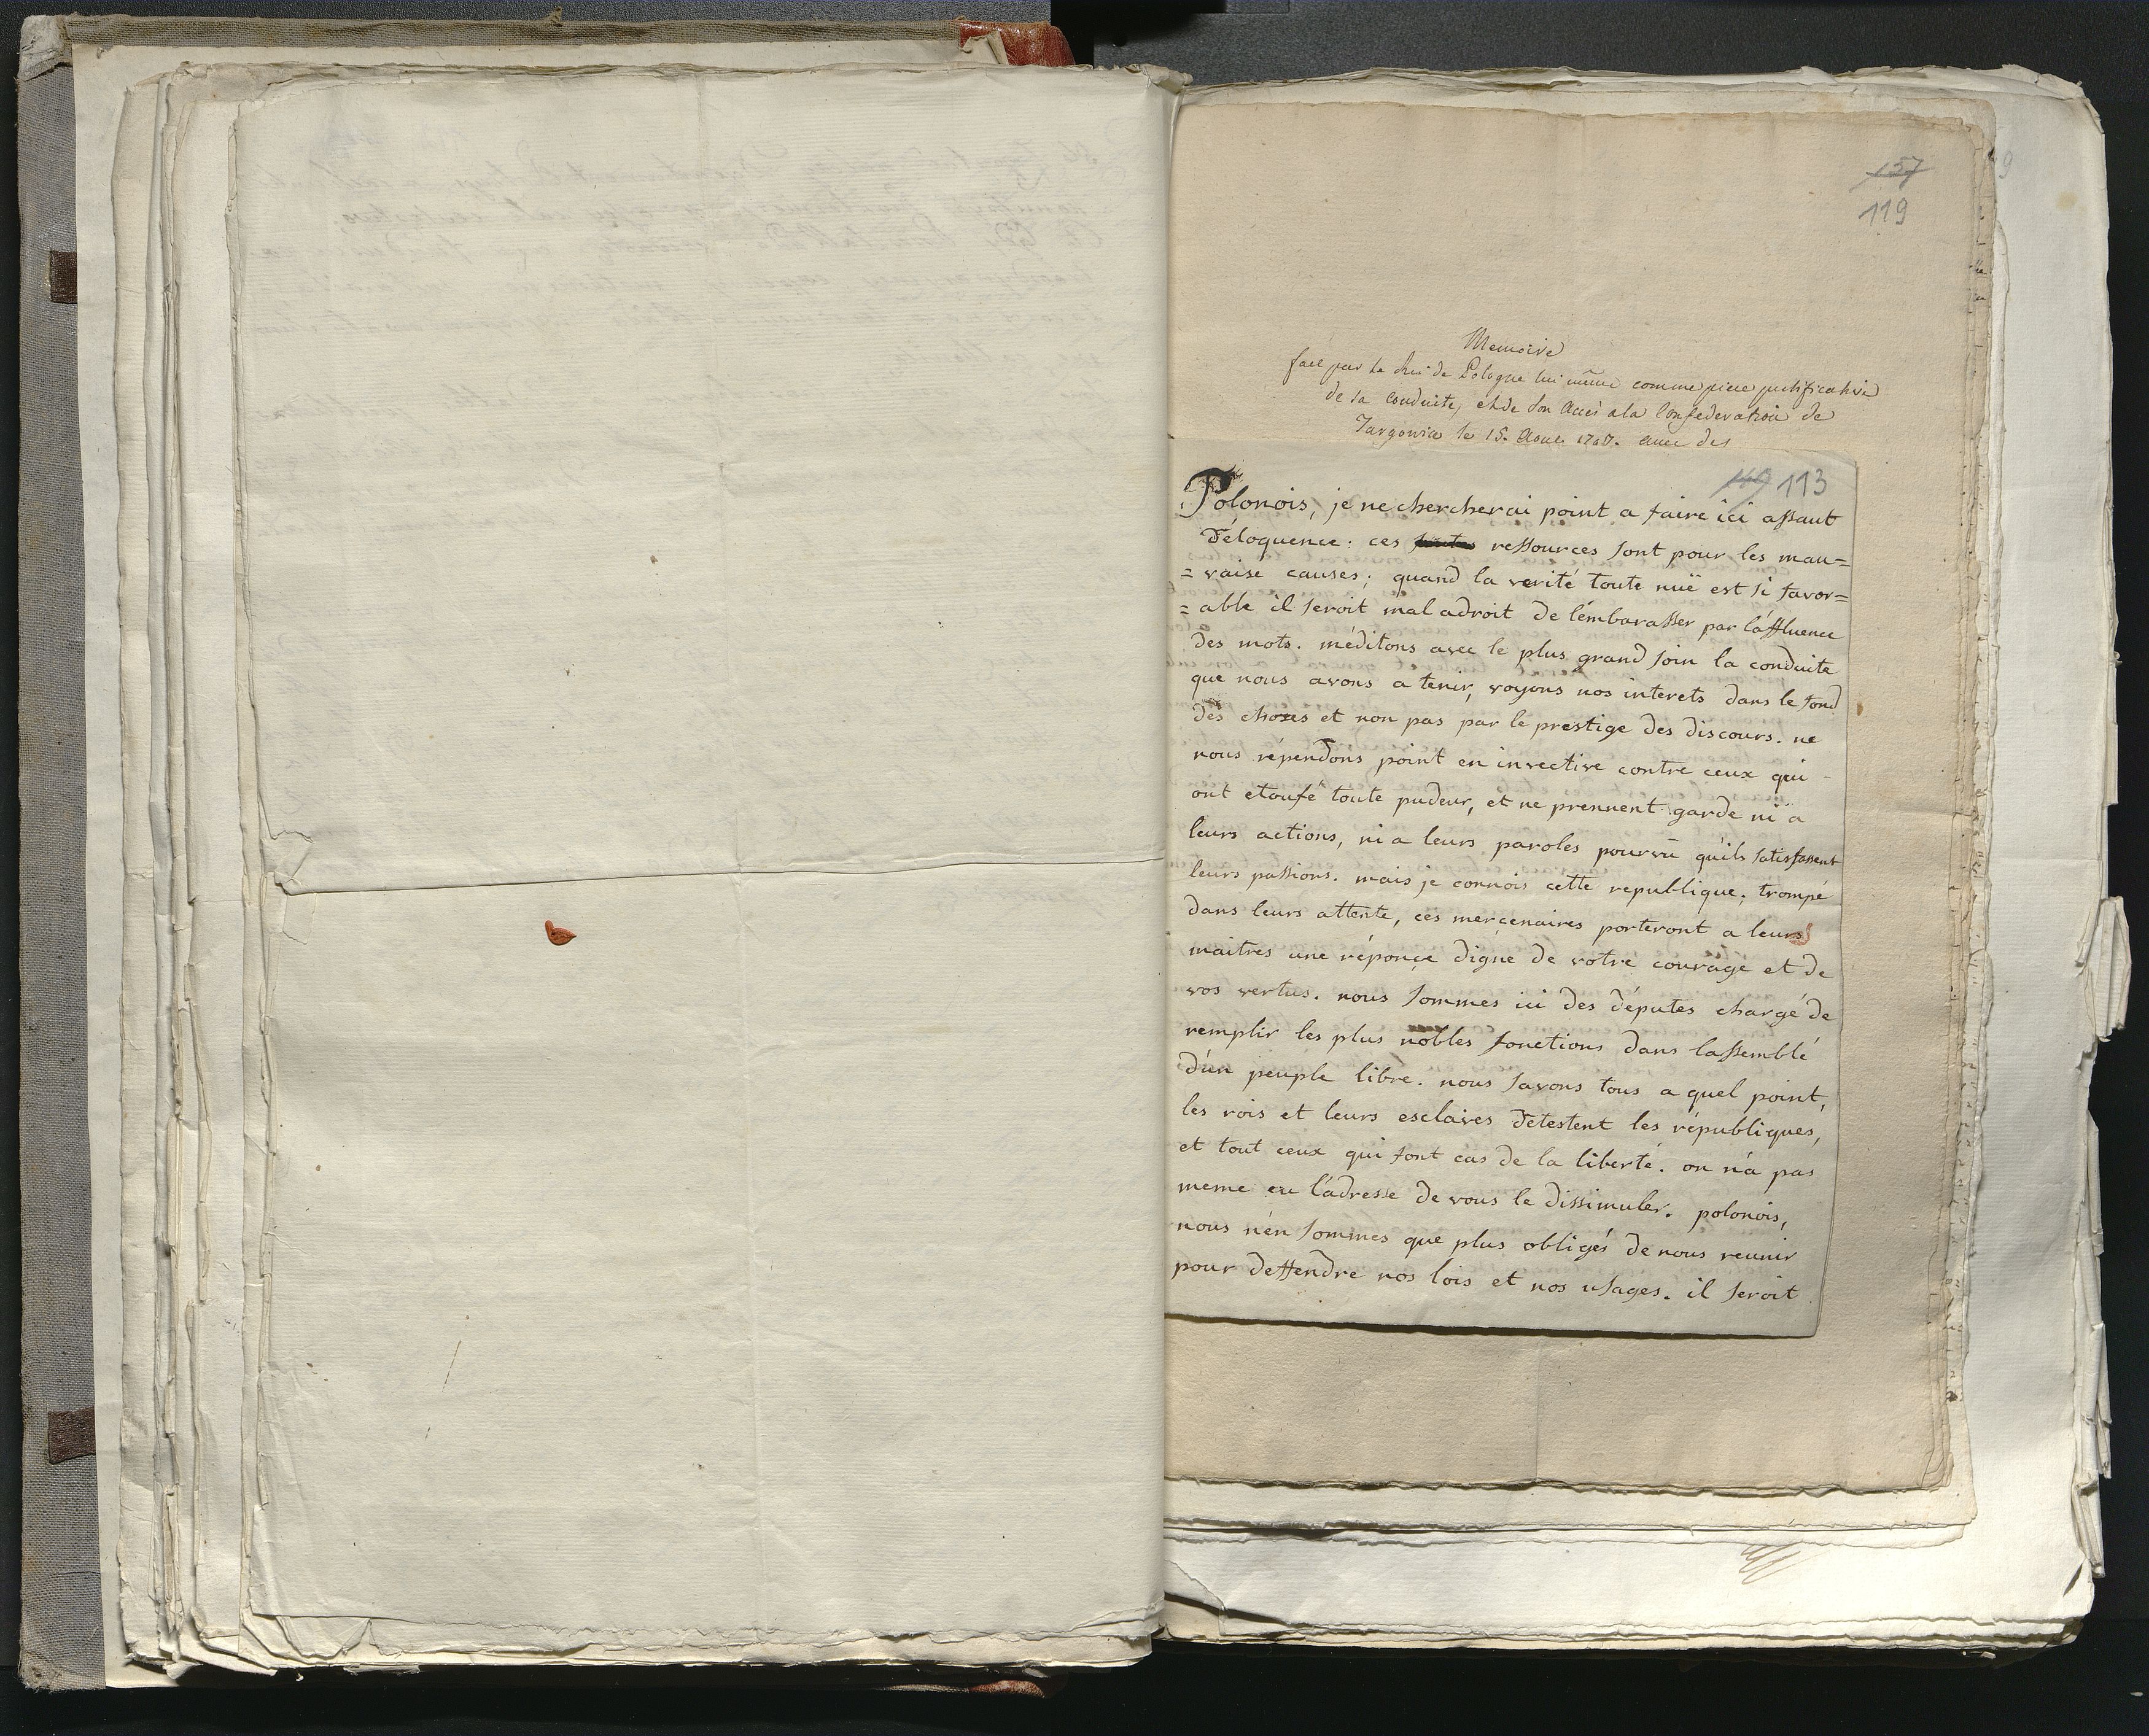 157
119
Memoire
fait par le Roi de Pologne lui même comme piece justificative
de sa Conduite, et de son Accès a la Confederation de
Targowice le 15. Aout. avec des
119 113
Polonois, je ne chercherai point a faire ici assaut
d'éloquence: ces ressources sont pour les mau=
=vaise causes; quand la verité toute nuë est si favor=
=able il seroit mal adroit de l'émbarasser par l'áffluence
des mots. méditons avec le plus grand soin la conduite
que nous avons a tenir, voyons nos interets dans le fond
des choses et non pas par le prestige des discours. ne
nous répendons point en invective contre ceux qui
ont etoufé toute pudeur, et ne prennent garde ni a
leurs actions, ni a leurs paroles pourvû qu'ils satisfassent
leurs passions. mais je connois cette republique; trompé
dans leurs attente, ces mercenaires porteront a leurs
maitres une réponçe digne de votre courage et de
vos vertus. nous sommes ici des députes chargé de
remplir les plus nobles fonctions dans lassemblé
d'un peuple libre. nous savons tous a quel point,
les rois et leurs esclaves détestent les républiques,
et tout ceux qui font cas de la liberté. on n'a pas
meme eu l'adresse de vous le dissimuler. polonois,
nous n'én sommes que plus obligés de nous reunir
pour deffendre nos lois et nos usages. il seroit